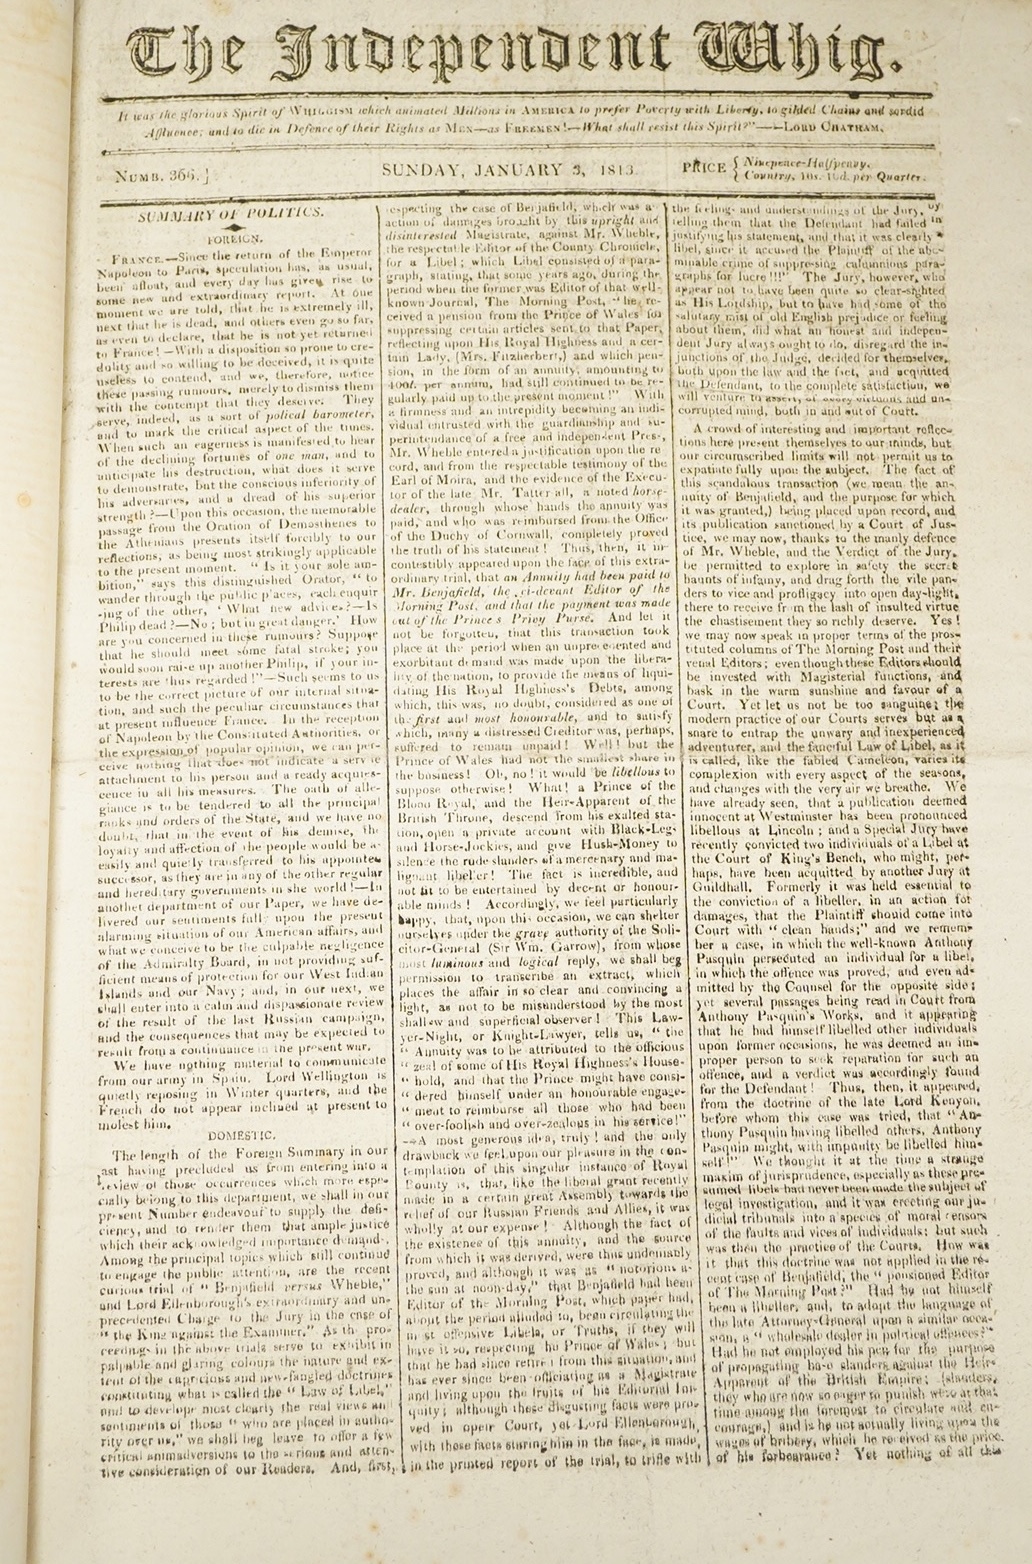 The Independent Whig.
It was the glorious Spirit of WHIGGISM which animated Millions in AMERICA to prefer Poverty with Liberty, to gilded Chains and sordid
Affluence; and to die in Defence of their Rights as MEN—as FREEMEN!—What shall resist this Spirit?"——LORD CHATHAM.
NUMB. 366.]
SUNDAY, JANUARY 3, 1813.
PRICE { Ninepence-Halfpenny.
{ Country, 10s. 10d. per Quarter.
SUMMARY OF POLITICS.
FOREIGN.
FRANCE.—Since the return of the Emperor
Napoleon to Paris, speculation has, as usual,
been afloat, and every day has given rise to
some new and extraordinary report. At one
moment we are told, that he is extremely ill,
next that he is dead, and others even go so far,
as even to declare, that he is not yet returned
to France!—With a disposition so prone to cre-
dulity and so willing to be deceived, it is quite
useless to contend, and we, therefore, notice
these passing rumours, merely to dismiss them
with the contempt that they deserve. They
serve, indeed, as a sort of polical barometer,
and to mark the critical aspect of the times.
When such an eagerness is manifested to hear
of the declining fortunes of one man, and to
anticipate his destruction, what does it serve
to demonstrate, but the conscious inferiority of
his adversaries, and a dread of his superior
strength?—Upon this occasion, the memorable
passage from the Oration of Demosthenes to
the Athenians presents itself forcibly to our
reflections, as being most strikingly applicable
to the present moment. "Is it your sole am-
bition," says this distinguished Orator, "to
wander through the public places, each enquir
-ing of the other, 'What new advices?—Is
Philip dead?—No; but in great danger.' How
are you concerned in these rumours? Suppose
that he should meet some fatal stroke; you
would soon raise up another Philip, if your in-
terests are thus regarded!"—Such seems to us
to be the correct picture of our internal situa-
tion, and such the peculiar circumstances that
at present influence France. In the reception
of Napoleon by the Constituted Authorities, or
the expression of popular opinion, we can per-
ceive nothing that does not indicate a servile
attachment to his person and a ready acquies-
cence in all his measures. The oath of alle-
giance is to be tendered to all the principal
ranks and orders of the State, and we have no
doubt, that in the event of his demise, the
loyalty and affection of the people would be a-
easily and quietly transferred to his appointed
successor, as they are in any of the other regular
and hereditary governments in the world!—In
another department of our Paper, we have de-
livered our sentiments fully upon the present
alarming situation of our American affairs, and
what we conceive to be the culpable negligence
of the Admiralty Board, in not providing suf-
ficient means of protection for our West Indian
Islands and our Navy; and, in our next, we
shall enter into a calm and dispassionate review
of the result of the last Russian campaign,
and the consequences that may be expected to
result from a continuance in the present war.
We have nothing material to communicate
from our army in Spain. Lord Wellington is
quietly reposing in Winter quarters, and the
French do not appear inclined at present to
molest him.
DOMESTIC.
The length of the Foreign Summary in our
last having precluded us from entering into a
review of those occurrences which more espe-
cially belong to this department, we shall in our
present Number endeavour to supply the defi-
ciency, and to render them that ample justice
which their acknowledged importance demand-.
Among the principal topics which still continued
to engage the public attention, are the recent
curious trial of "Benjafield versus Wheble,"
and Lord Ellenborough's extraordinary and un-
precedented Charge to the Jury in the case of
"the King against the Examiner." As the pro-
ceedings in the above trials serve to exhibit in
palpable and glaring colours the nature and ex-
tent of the capricious and new-fangled doctrines
constituting what is called the "Law of Libel,"
and to develope most clearly the real views and
sentiments of those "who are placed in autho-
rity over us," we shall beg leave to offer a few
critical animadversions to the serious and atten-
tive consideration of our Readers. And, first,
respecting the case of Benjafield, which was a-
action of damages brought by this upright and
disinterested Magistrate, against Mr. Wheble,
the respectable Editor of the County Chronicle,
for a Libel; which Libel consisted of a para-
graph, stating, that some years ago, during the
period when the former was Editor of that well-
known Journal, The Morning Post, "he re-
ceived a pension from the Prince of Wales for
suppressing certain articles sent to that Paper,
reflecting upon His Royal Highness and a cer-
tain Lady, (Mrs. Fitzherbert,) and which pen-
sion, in the form of an annuity, amounting to
400l. per annum, had still continued to be re-
gularly paid up to the present moment!" With
a firmness and an intrepidity becoming an indi-
vidual entrusted with the guardianship and su-
perintendance of a free and independent Press,
Mr. Wheble entered a justification upon the re
cord, and from the respectable testimony of the
Earl of Moira, and the evidence of the Execu-
tor of the late Mr. Tattersall, a noted horse-
dealer, through whose hands the annuity was
paid, and who was reimbursed from the Office
of the Duchy of Cornwall, completely proved
the truth of his statement! Thus, then, it in-
contestibly appeared upon the face of this extra-
ordinary trial, that an Annuity had been paid to
Mr. Benjafield, the ci-devant Editor of the
Morning Post, and that the payment was made
out of the Prince's Privy Purse. And let it
not be forgotten, that this transaction took
place at the period when an unprecedented and
exorbitant demand was made upon the libera-
lity of the nation, to provide the means of liqui-
dating His Royal Highness's Debts, among
which, this was, no doubt, considered as one of
the first and most honourable, and to satisfy
which, many a distressed Creditor was, perhaps,
suffered to remain unpaid! Well! but the
Prince of Wales had not the smallest share in
the business! Oh, no! it would be libellous to
suppose otherwise! What! a Prince of the
Blood Royal, and the Heir-Apparent of the
British Throne, descend from his exalted sta-
tion, open a private account with Black-Legs
and Horse-Jockies, and give Hush-Money to
silence the rude slanders of a mercenary and ma-
lignant libeller! The fact is incredible, and
not fit to be entertained by decent or honour-
able minds! Accordingly, we feel particularly
happy, that, upon this occasion, we can shelter
ourselves under the grave authority of the Soli-
citor-General (Sir Wm. Garrow), from whose
most luminous and logical reply, we shall beg
permission to transcribe an extract, which
places the affair in so clear and convincing a
light, as not to be misunderstood by the most
shallow and superficial observer! This Law-
yer-Night, or Knight-Lawyer, tells us, "the
"Annuity was to be attributed to the officious
"zeal of some of His Royal Highness's House-
"hold, and that the Prince might have consi-
"dered himself under an honourable engage-
"ment to reimburse all those who had been
"over-foolish and over-zealous in his service!"
—A most generous idea, truly! and the only
drawback we feel upon our pleasure in the con-
templation of this singular instance of Royal
Bounty is, that, like the liberal grant recently
made in a certain great Assembly towards the
relief of our Russian Friends and Allies, it was
wholly at our expense! Although the fact of
the existence of this annuity, and the source
from which it was derived, were thus undeniably
proved, and although it was as "notorious as
the sun at noon-day," that Benjafield had been
Editor of the Morning Post, which paper had,
about the period alluded to, been circulating the
most offensive Libels, or Truths, if they will
have it so, respecting the Prince of Wales; but
that he had since retired from this situation, and
has ever since been officiating as a Magistrate
and living upon the fruits of his Editorial Ini-
quity; although these disgusting facts were pro-
ved in open Court, yet Lord Ellenborough,
with these facts staring him in the face, is made,
in the printed report of the trial, to trifle with
the feelings and understandings of the Jury, by
telling them that the Defendant had failed in
justifying his statement, and that it was clearly a
libel, since it accused the Plaintiff of the abo-
minable crime of suppressing calumnious para-
graphs for lucre!!!" The Jury, however, who
appear not to have been quite so clear-sighted
as His Lordship, but to have had some of the
salutary mist of old English prejudice or feeling
about them, did what an honest and indepen-
dent Jury always ought to do, disregard the in-
junctions of the Judge, decided for themselves,
both upon the law and the fact, and acquitted
the Defendant, to the complete satisfaction, we
will venture to assert, of every virtuous and un-
corrupted mind, both in and out of Court.
A crowd of interesting and important reflec-
tions here present themselves to our minds, but
our circumscribed limits will not permit us to
expatiate fully upon the subject. The fact of
this scandalous transaction (we mean the an-
nuity of Benjafield, and the purpose for which
it was granted,) being placed upon record, and
its publication sanctioned by a Court of Jus-
tice, we may now, thanks to the manly defence
of Mr. Wheble, and the Verdict of the Jury,
be permitted to explore in safety the secret
haunts of infamy, and drag forth the vile pan-
ders to vice and profligacy into open day-light,
there to receive from the lash of insulted virtue
the chastisement they so richly deserve. Yes!
we may now speak in proper terms of the pros-
tituted columns of The Morning Post and their
venal Editors; even though these Editors should
be invested with Magisterial functions, and
bask in the warm sunshine and favour of a
Court. Yet let us not be too sanguine; the
modern practice of our Courts serves but as a
snare to entrap the unwary and inexperienced
adventurer, and the fanciful Law of Libel, as it
is called, like the fabled Cameleon, varies its
complexion with every aspect of the seasons,
and changes with the very air we breathe. We
have already seen, that a publication deemed
innocent at Westminster has been pronounced
libellous at Lincoln; and a Special Jury have
recently convicted two individuals of a Libel at
the Court of King's Bench, who might, per-
haps, have been acquitted by another Jury at
Guildhall. Formerly it was held essential to
the conviction of a libeller, in an action for
damages, that the Plaintiff should come into
Court with "clean hands;" and we remem-
ber a case, in which the well-known Anthony
Pasquin persecuted an individual for a libel,
in which the offence was proved, and even ad-
mitted by the Counsel for the opposite side;
yet several passages being read in Court from
Anthony Pasquin's Works, and it appearing
that he had himself libelled other individuals
upon former occasions, he was deemed an im-
proper person to seek reparation for such an
offence, and a verdict was accordingly found
for the Defendant! Thus, then, it appeared,
from the doctrine of the late Lord Kenyon,
before whom this case was tried, that "An-
thony Pasquin having libelled others, Anthony
Pasquin might, with impunity be libelled him-
self!" We thought it at the time a strange
maxim of jurisprudence, especially as these pre-
sumed libels had never been made the subject of
legal investigation, and it was erecting our ju-
dicial tribunals into a species of moral censors
of the faults and vices of individuals; but such
was then the practice of the Courts. How was
it that this doctrine was not applied in the re-
cent case of Benjafield, the "pensioned Editor
of The Morning Post?" Had he not himself
been a libeller, and, to adopt the language of
the late Attorney-General upon a similar occa-
sion, a "wholesale dealer in political offences?"
Had he not employed his pen for the purpose
of propagating base slanders against the Heir-
Apparent of the British Empire; (slanders,
they who are now so eager to punish were at that
time among the foremost to circulate and en-
courage,) and is he not actually living upon the
wages of bribery, which he received as the price
of his forbearance? Yet nothing of all this